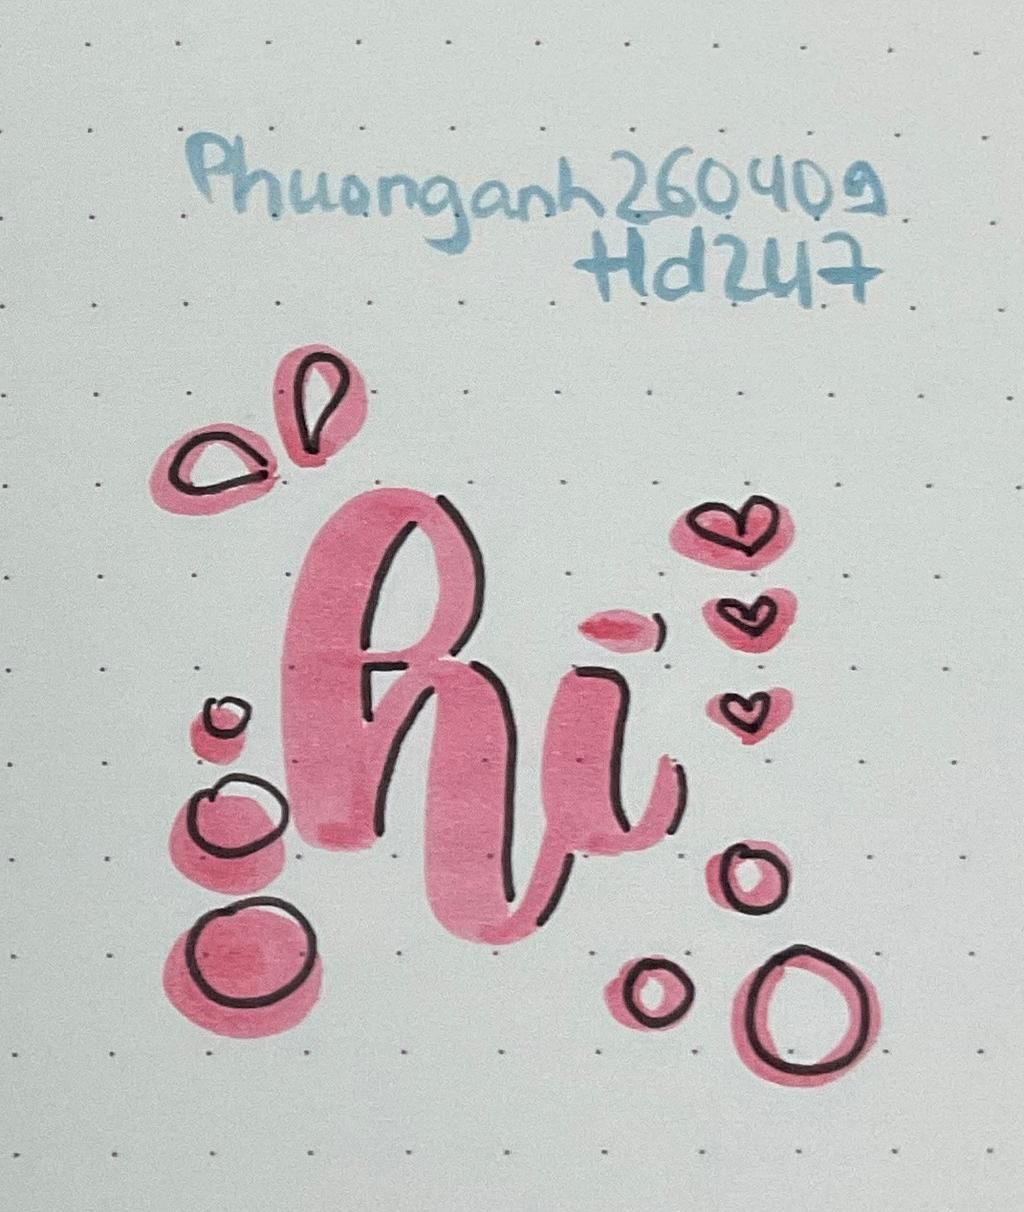 Phuonganh260409
Hd247
hi